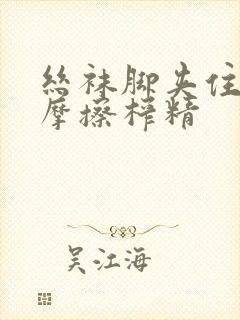 丝袜脚夹住
摩擦榨精
吴江海